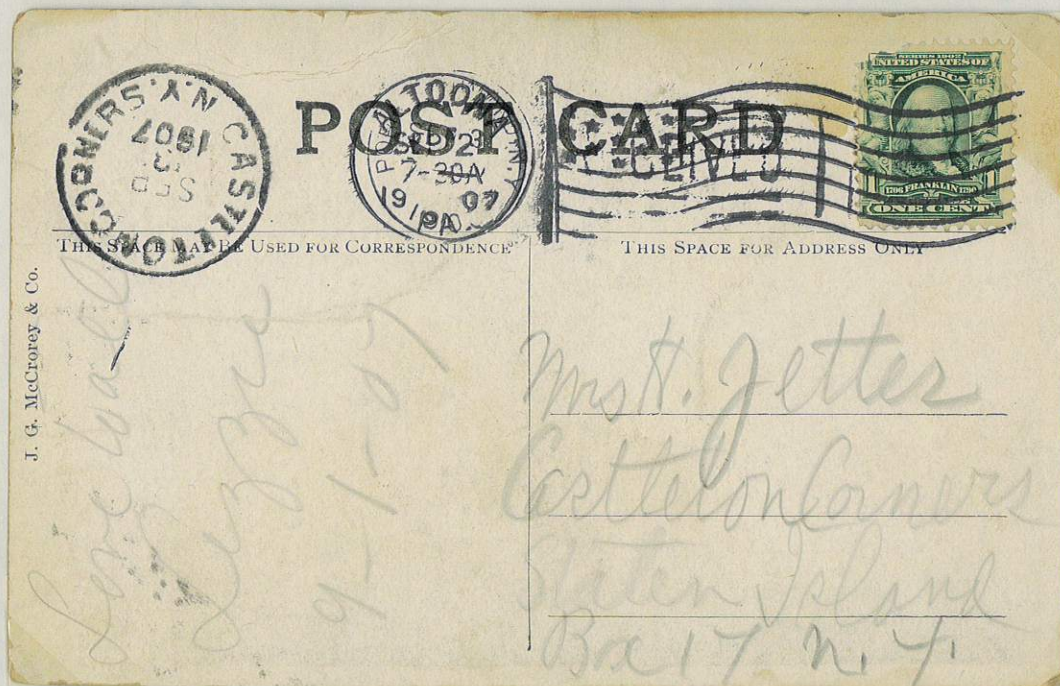 POST CARD
CASTLETON CORNERS N.Y.
SEP
1907
ALTOONA
PA
SEP 2
7-30A
07
RECEIVED
SERIES 1902
UNITED STATES OF
AMERICA
1706 FRANKLIN 1790
ONE CENT
THIS SPACE MAY BE USED FOR CORRESPONDENCE
THIS SPACE FOR ADDRESS ONLY
J. G. McCrorey & Co.
Love to all
Lizzie
9-1-07
Mrs H. Jetter
Castleton Corners
Staten Island
Box 17 N. Y.